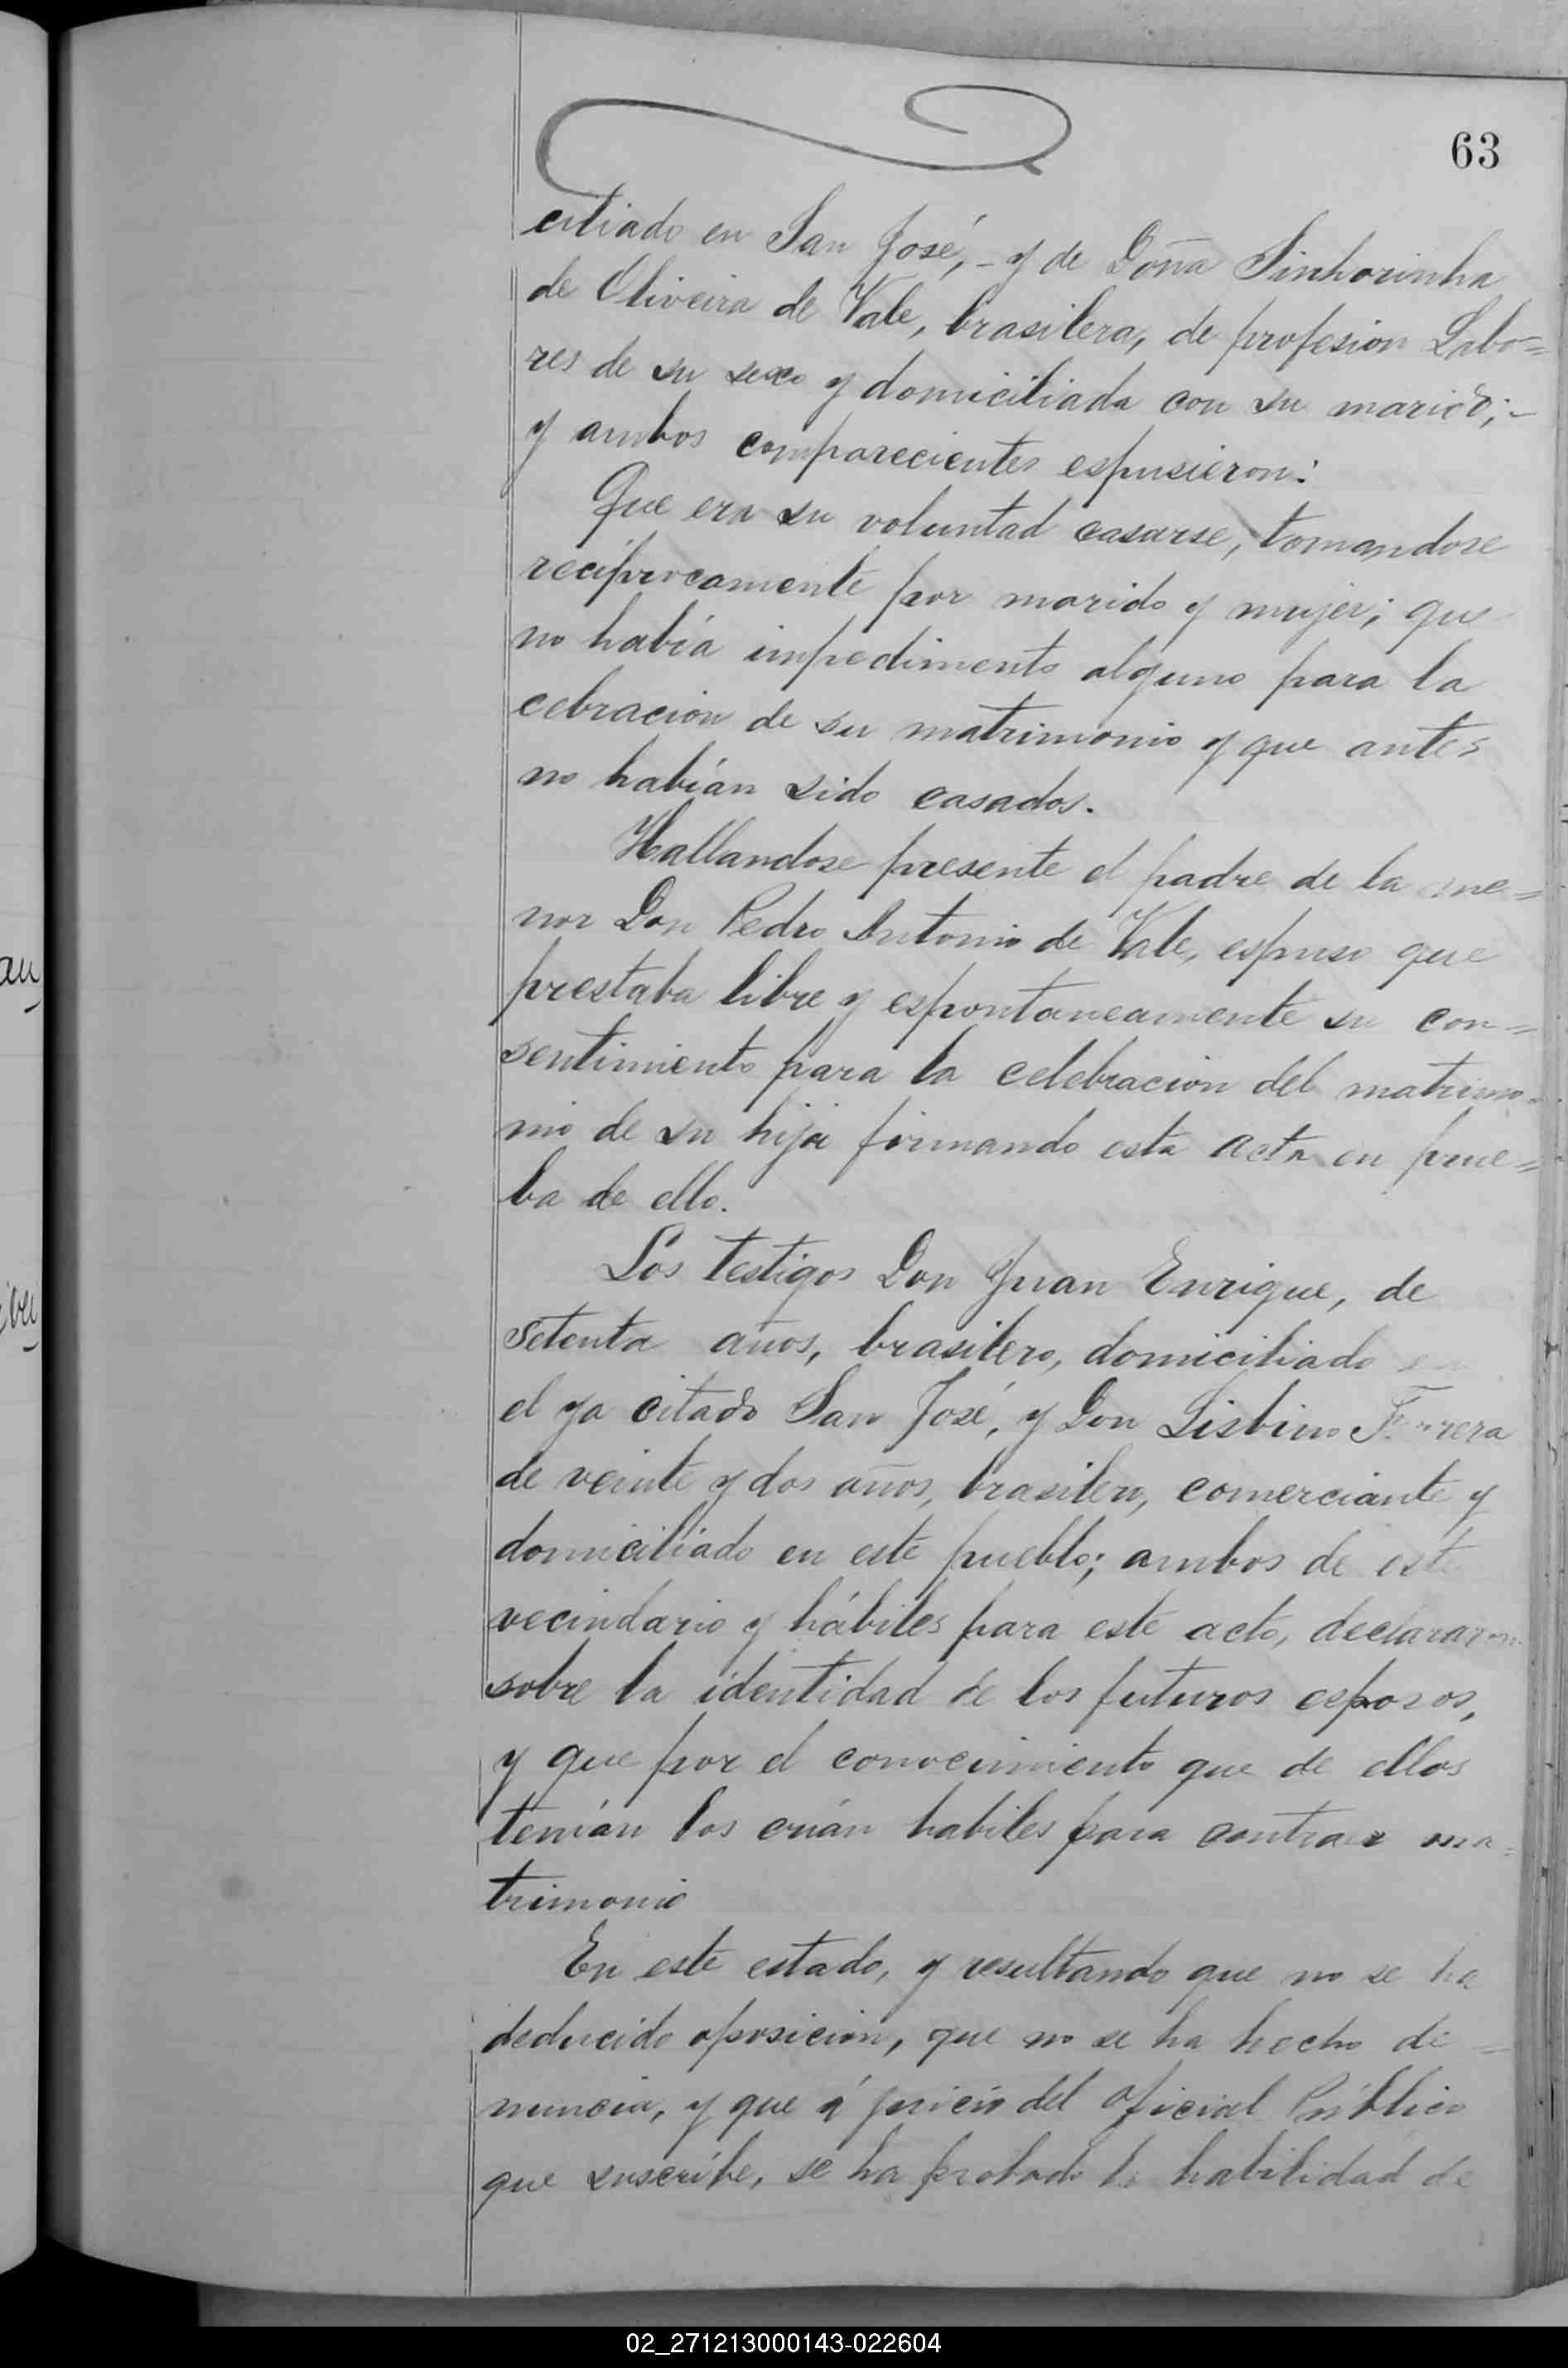 63
ciliado en San José, - y de Doña Sinhorinha
de Oliveira de Vale, brasilera, de profesion Labo=
res de su sexo y domiciliada con su marido; -
y ambos comparecientes espusieron:
Que era su voluntad casarse, tomandose
recíprocamente por marido y mujer; que
no había impedimento alguno para la
cebracion de su matrimonio y que antes
no habían sido casados.
Hallandose presente el padre de la me=
nor Don Pedro Antonio de Vale, espuso que
prestaba libre y espontaneamente su con=
sentimiento para la celebracion del matrimo=
nio de su hija firmando esta acta en prue=
ba de ello.
Los testigos Don Juan Enrique, de
setenta años, brasilero, domiciliado en
el ya citado San José, y Don Lisbino
de veinte y dos años, brasilero, comerciante y
domiciliado en este pueblo; ambos de este
vecindario y hábiles para este acto, declararon
sobre la identidad de los futuros esposos,
y que por el conocimiento que de ellos
tenían los crián habiles para contraer ma=
trimonio
En este estado, y resultando que no se ha
deducido oposicion, que no se ha hecho de=
nuncia, y que á juicio del Oficial Público
que suscribe, se ha probado la habilidad de
au
bei
02_271213000143-022604